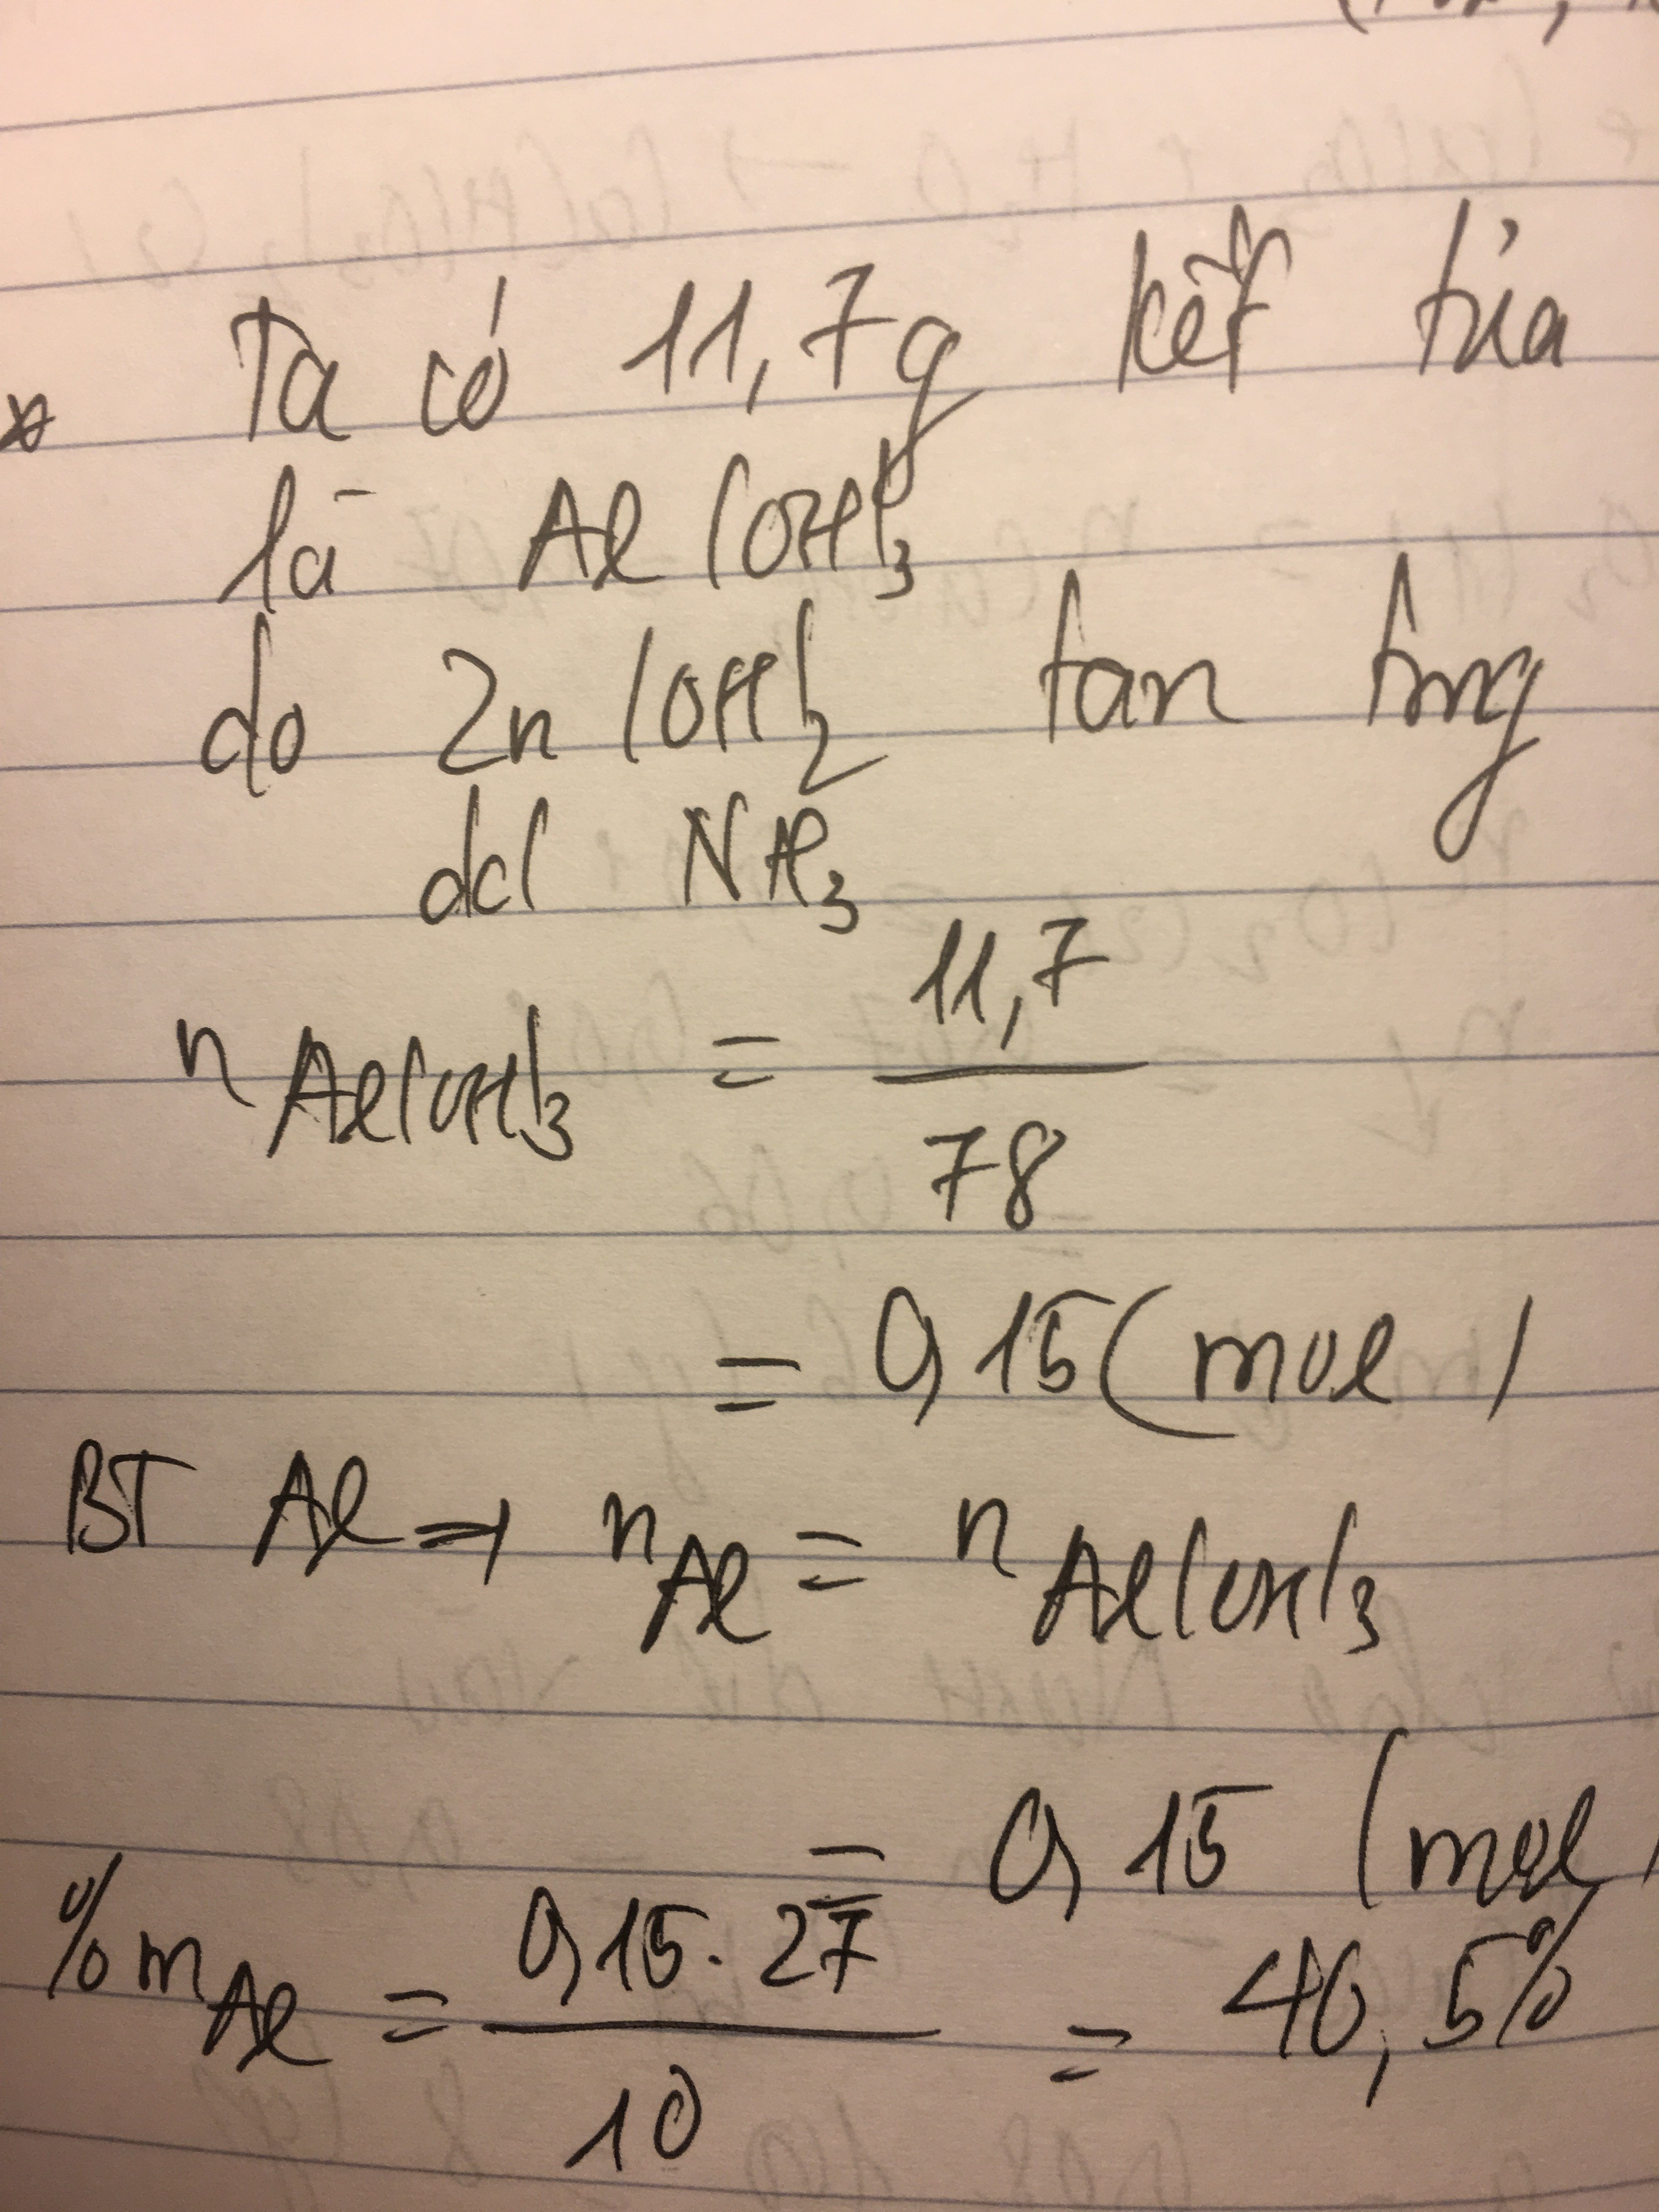 Ta có 11,7g kết tủa
là Al(OH)3
do Zn(OH)2 tan trong
dd NH3
nAl(OH)3 = 11,7
78
= 0,15 (mol)
BT Al => nAl = nAl(OH)3
= 0,15 (mol)
%mAl = 0,15.27 = 40,5%
10